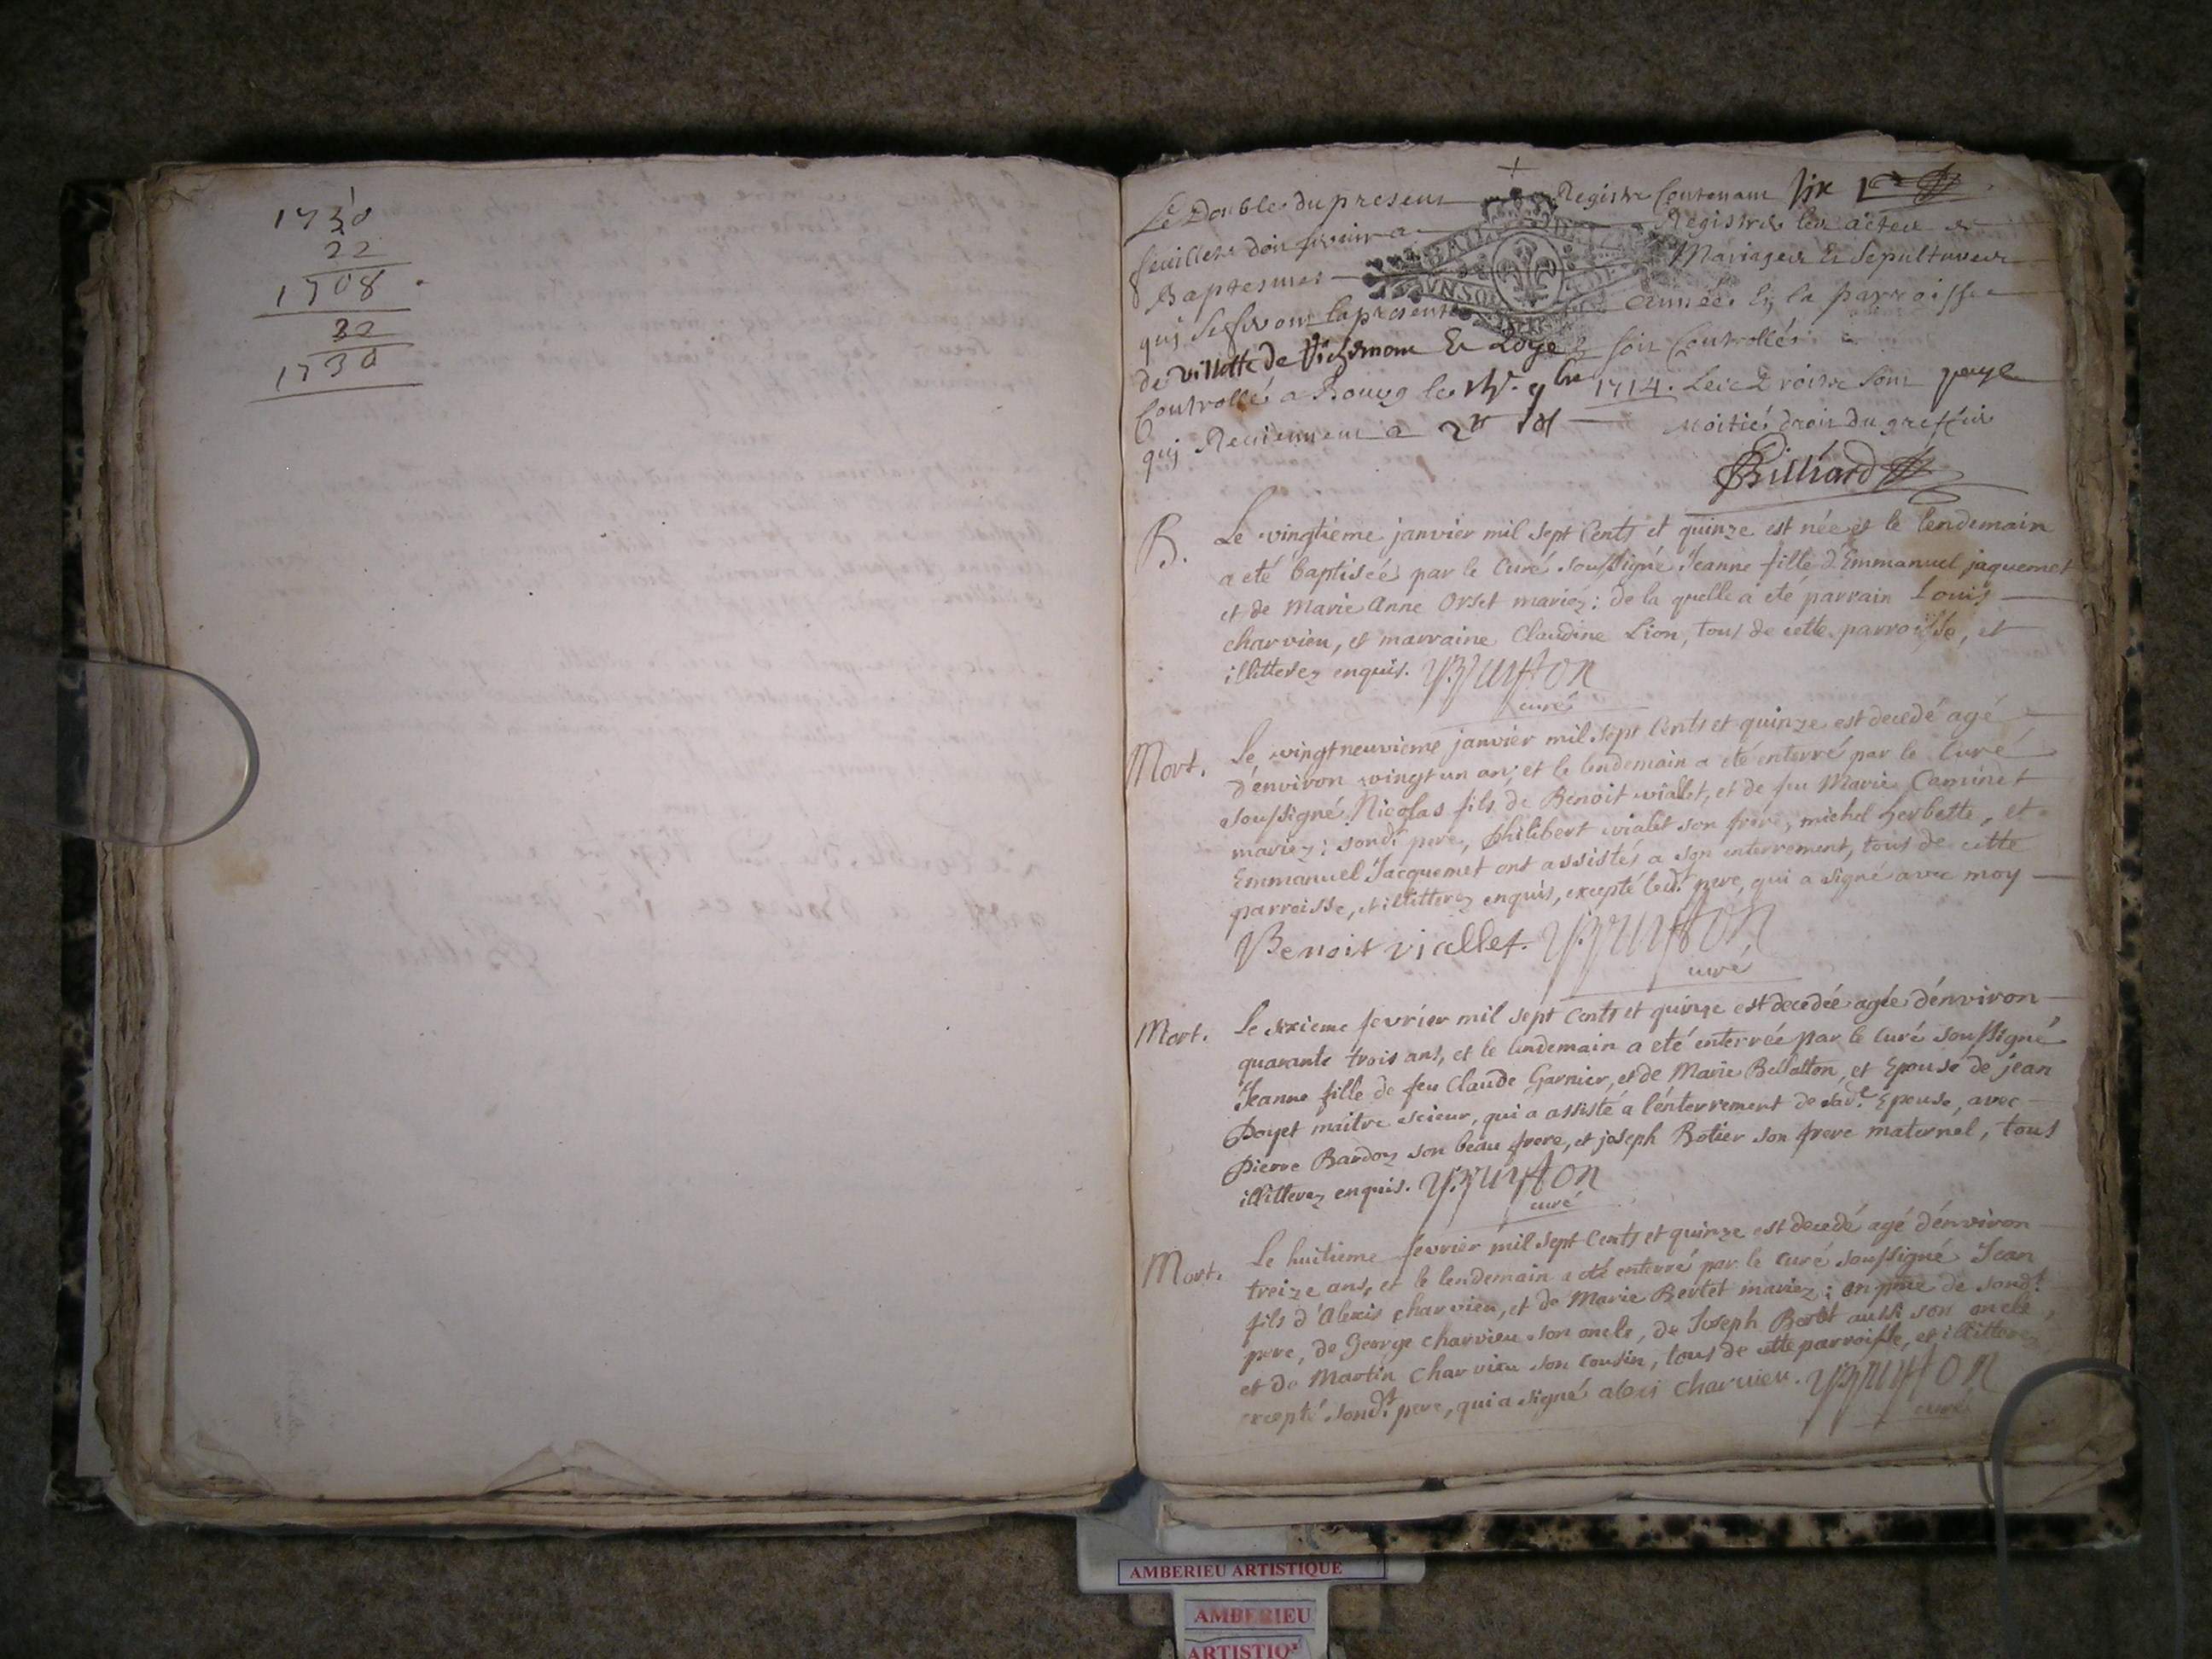 1730
22
1708
22
1730
Le Double du present Registre Contenant six
feuillets doit servir a Registrer les actes de
Baptesmes Mariages Et Sepultures
qui se feront la presente année En la parroisse
de villette de Richemont Et Loye soit Controllés
Controllé a Bourg le 9bre 1714. Les droits sont payé
qui Reviennent a moitié droit du greffier
Billiard
B. Le vingtieme janvier mil sept Cents et quinze est née et le lendemain
a eté baptisée par le Curé soussigné Jeanne fille d'Emmanuel jaquemet
et de Marie Anne Orset mariez: de la quelle a eté parrain Louis
charvieu, et marraine Claudine Lion, tous de cette parroisse, et
illitterez enquis. Bruston
curé
Mort. Le vingtneuvieme janvier mil sept Cents et quinze est decedé agé
d'environ vingt un an, et le lendemain a eté enterré par le Curé
soussigné Nicolas fils de Benoit vialet, et de feu Marie Caminet
mariez: sondt. pere, Philibert vialet son frere, michel herbette, et
Emmanuel Jacquemet ont assistés a son enterrement, tous de cette
parroisse, et illitterez enquis, excepté ledt. pere, qui a signé avec moy
Benoit viallet. Bruston
curé
Mort. Le sixieme fevrier mil sept Cents et quinze est decedée agée d'environ
quarante trois ans, et le lendemain a eté enterrée par le Curé soussigné
Jeanne fille de feu Claude Garnier, et de Marie Bellatton, et Epouse de jean
Poyet maitre scieur, qui a assisté a l'enterrement de sadt. Epouse, avec
Pierre Bardoz son beau frere, et joseph Botier son frere maternel, tous
illitterez enquis. Bruston
curé
Mort. Le huitieme fevrier mil sept Cents et quinze est decedé agé d'environ
treize ans, et le lendemain a eté enterré par le Curé soussigné Jean
fils d'Alexis charvieu, et de Marie Bertet mariez; en pnce de sondt.
pere, de George charvieu son oncle, de Joseph Bertet aussi son oncle,
et de Martin Charvieu son cousin, tous de cette parroisse, et illitterez
excepté sondt. pere, qui a signé alexi charvieu. Bruston
curé
AMBERIEU ARTISTIQUE
AMBERIEU
ARTISTIQ